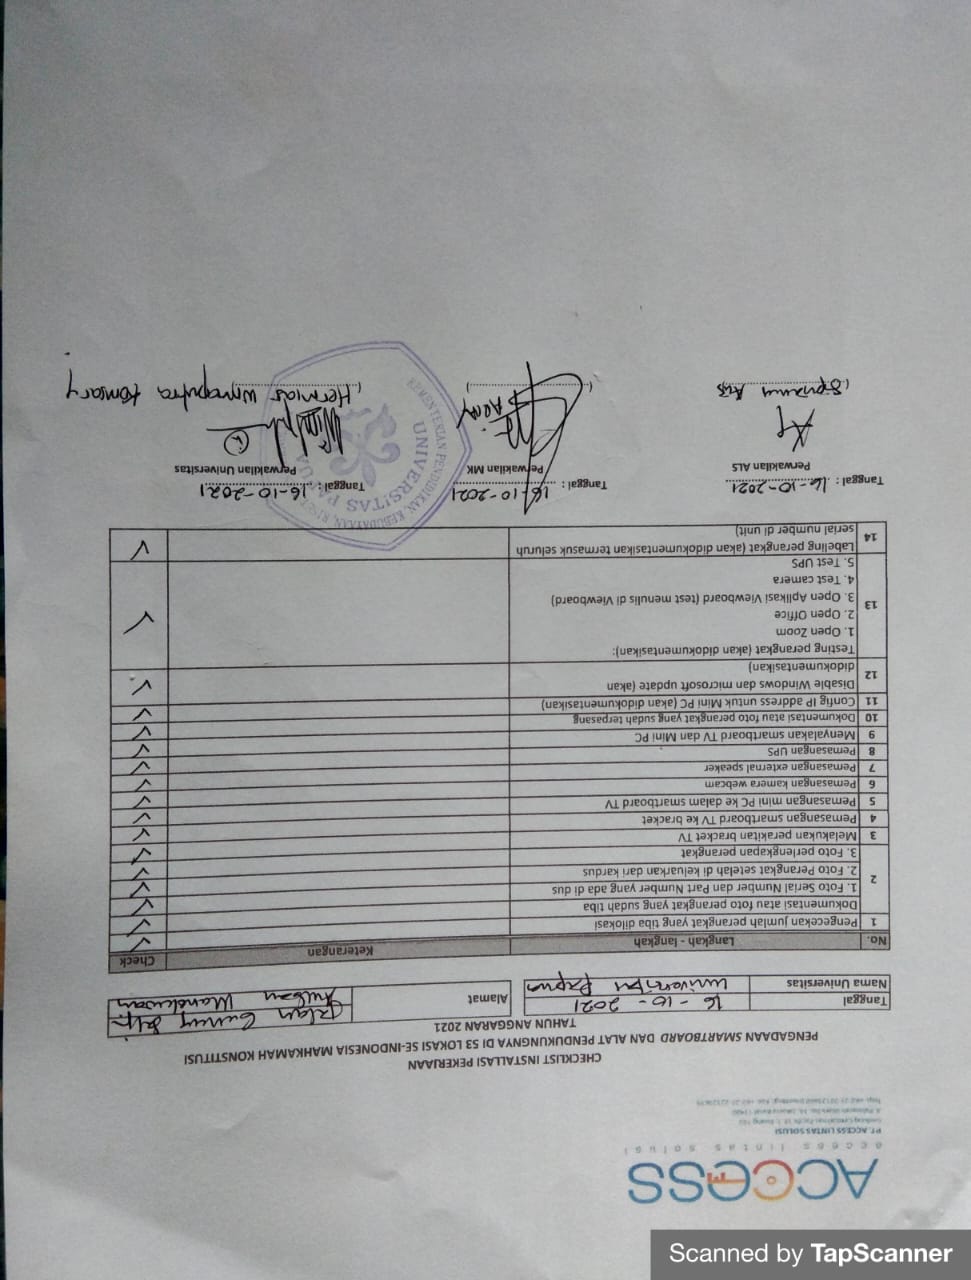 Scanned by TapScanner
ACCESS
access lintas solusi
PT. ACCESS LINTAS SOLUSI
CHECKLIST INSTALLASI PEKERJAAN
PENGADAAN SMARTBOARD DAN ALAT PENDUKUNGNYA DI 53 LOKASI SE-INDONESIA MAHKAMAH KONSTITUSI
TAHUN ANGGARAN 2021
Tanggal 16 - 10 - 2021 Alamat Jalan Gunung
Nama Universitas Universitas Papua Manokwari
No. Langkah - langkah Keterangan Check
1 Pengecekan jumlah perangkat yang tiba dilokasi
2 Dokumentasi atau foto perangkat yang sudah tiba
1. Foto Serial Number dan Part Number yang ada di dus
2. Foto Perangkat setelah di keluarkan dari kardus
3. Foto perlengkapan perangkat
3 Melakukan perakitan bracket TV
4 Pemasangan smartboard TV ke bracket
5 Pemasangan mini PC ke dalam smartboard TV
6 Pemasangan kamera webcam
7 Pemasangan external speaker
8 Pemasangan UPS
9 Menyalakan smartboard TV dan Mini PC
10 Dokumentasi atau foto perangkat yang sudah terpasang
11 Config IP address untuk Mini PC (akan didokumentasikan)
12 Disable Windows dan microsoft update (akan
didokumentasikan)
13 Testing perangkat (akan didokumentasikan):
1. Open Zoom
2. Open Office
3. Open Aplikasi Viewboard (test menulis di Viewboard)
4. Test camera
5. Test UPS
14 Labeling perangkat (akan didokumentasikan termasuk seluruh
serial number di unit)
Tanggal : 16-10-2021 Tanggal : 16-10-2021 Tanggal : 16-10-2021
Perwakilan ALS Perwakilan MK Perwakilan Universitas
KEMENTERIAN PENDIDIKAN, KEBUDAYAAN,
UNIVERSITAS PAPUA
Hermias Womaputra Komsary